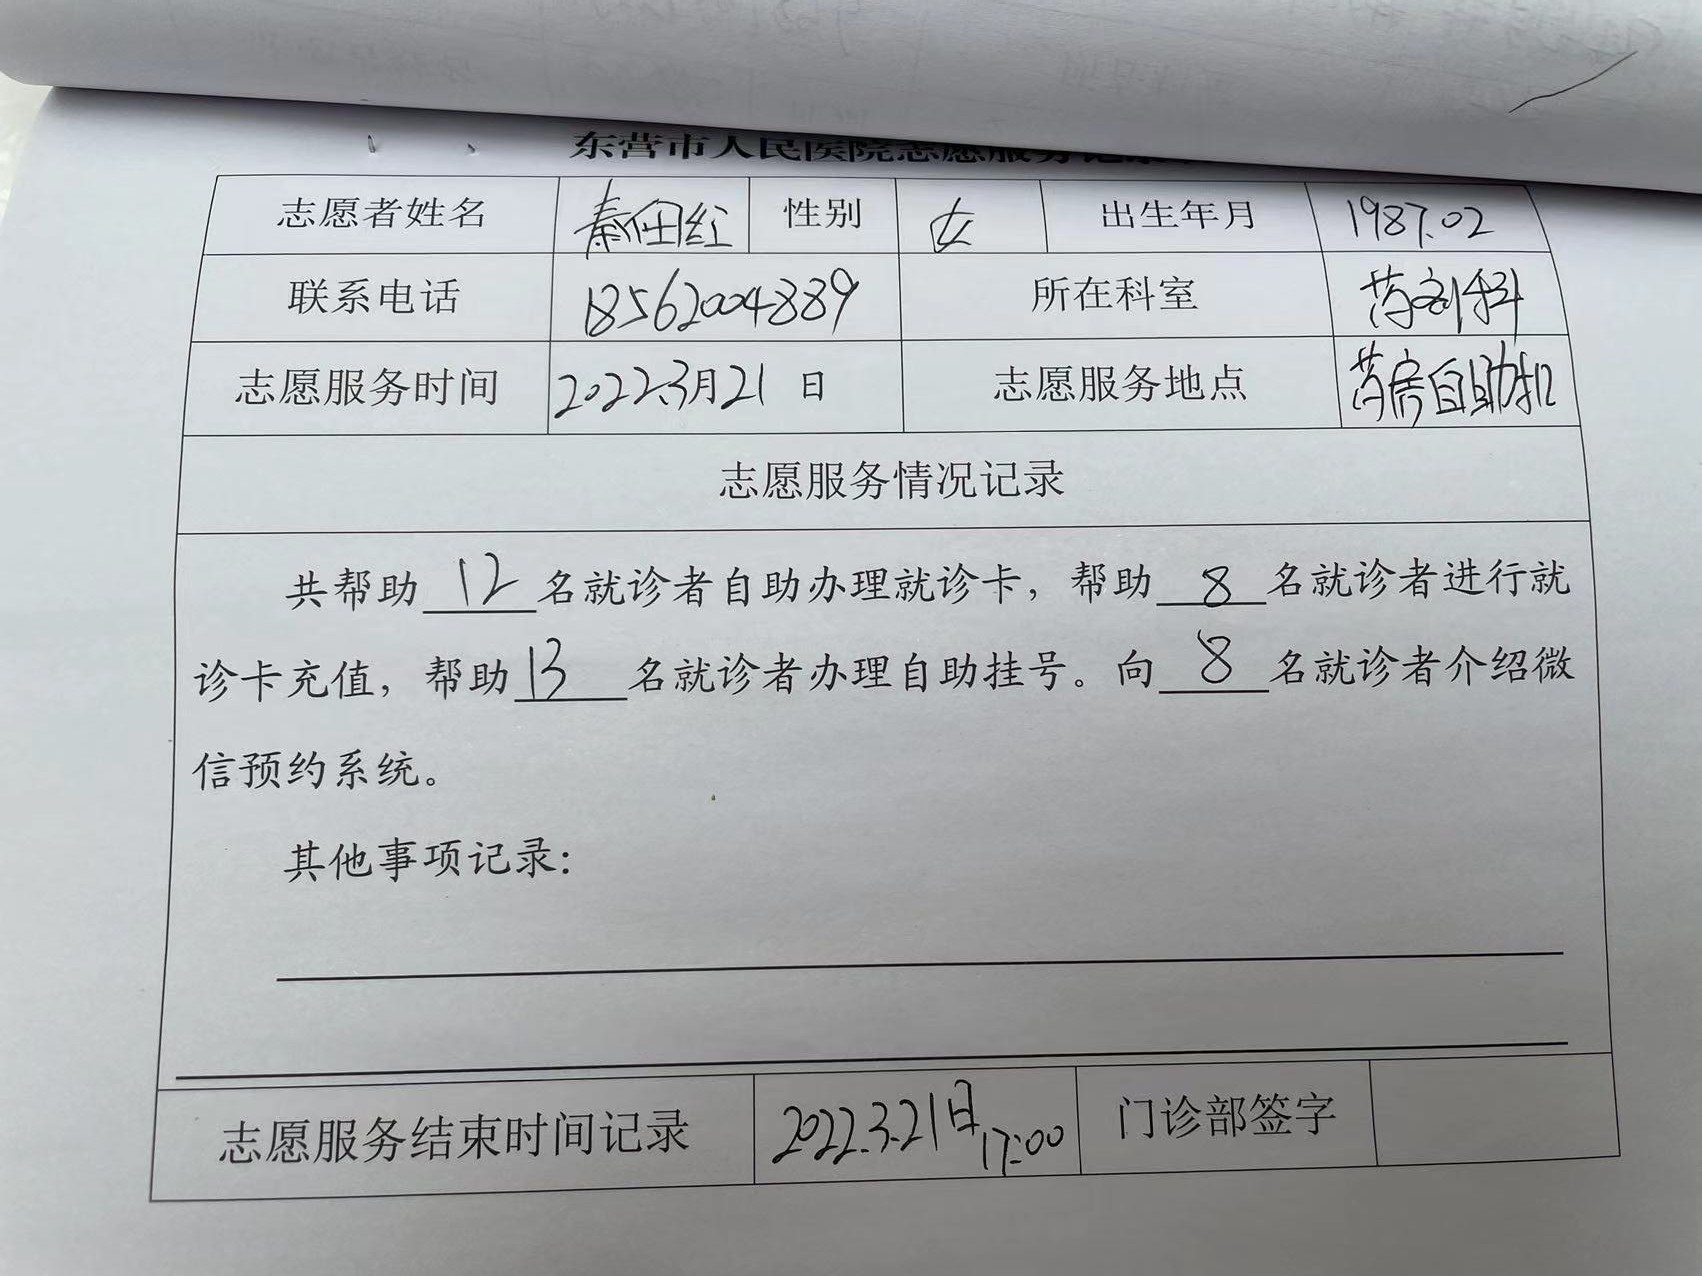 东营市人民医院志愿服务记录
志愿者姓名 秦佃红 性别 女 出生年月 1987.02
联系电话 18562004889 所在科室 药剂科
志愿服务时间 2022.3月21 日 志愿服务地点 药房自助机
志愿服务情况记录
共帮助 12 名就诊者自助办理就诊卡，帮助 8 名就诊者进行就
诊卡充值，帮助 13 名就诊者办理自助挂号。向 8 名就诊者介绍微
信预约系统。
其他事项记录：
志愿服务结束时间记录 2022.3.21日 17:00 门诊部签字